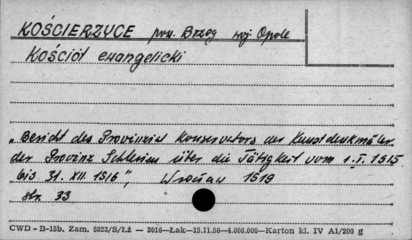 KOŚCIERZYCE pow. Brzeg woj. Opole
Kościół ewangelicki
„Bericht des Provinzial Konservators der Kunstdenkmäler
der Provinz Schlesien über die Tätigkeit vom 1.I.1915
bis 31.XII 1916", Wrocław 1919
str. 33
CWD - B-15b, Zam. 5823/S/Łż — 2016—Łak—15.11.56—4.000.000—Karton kl. IV A1/200 g